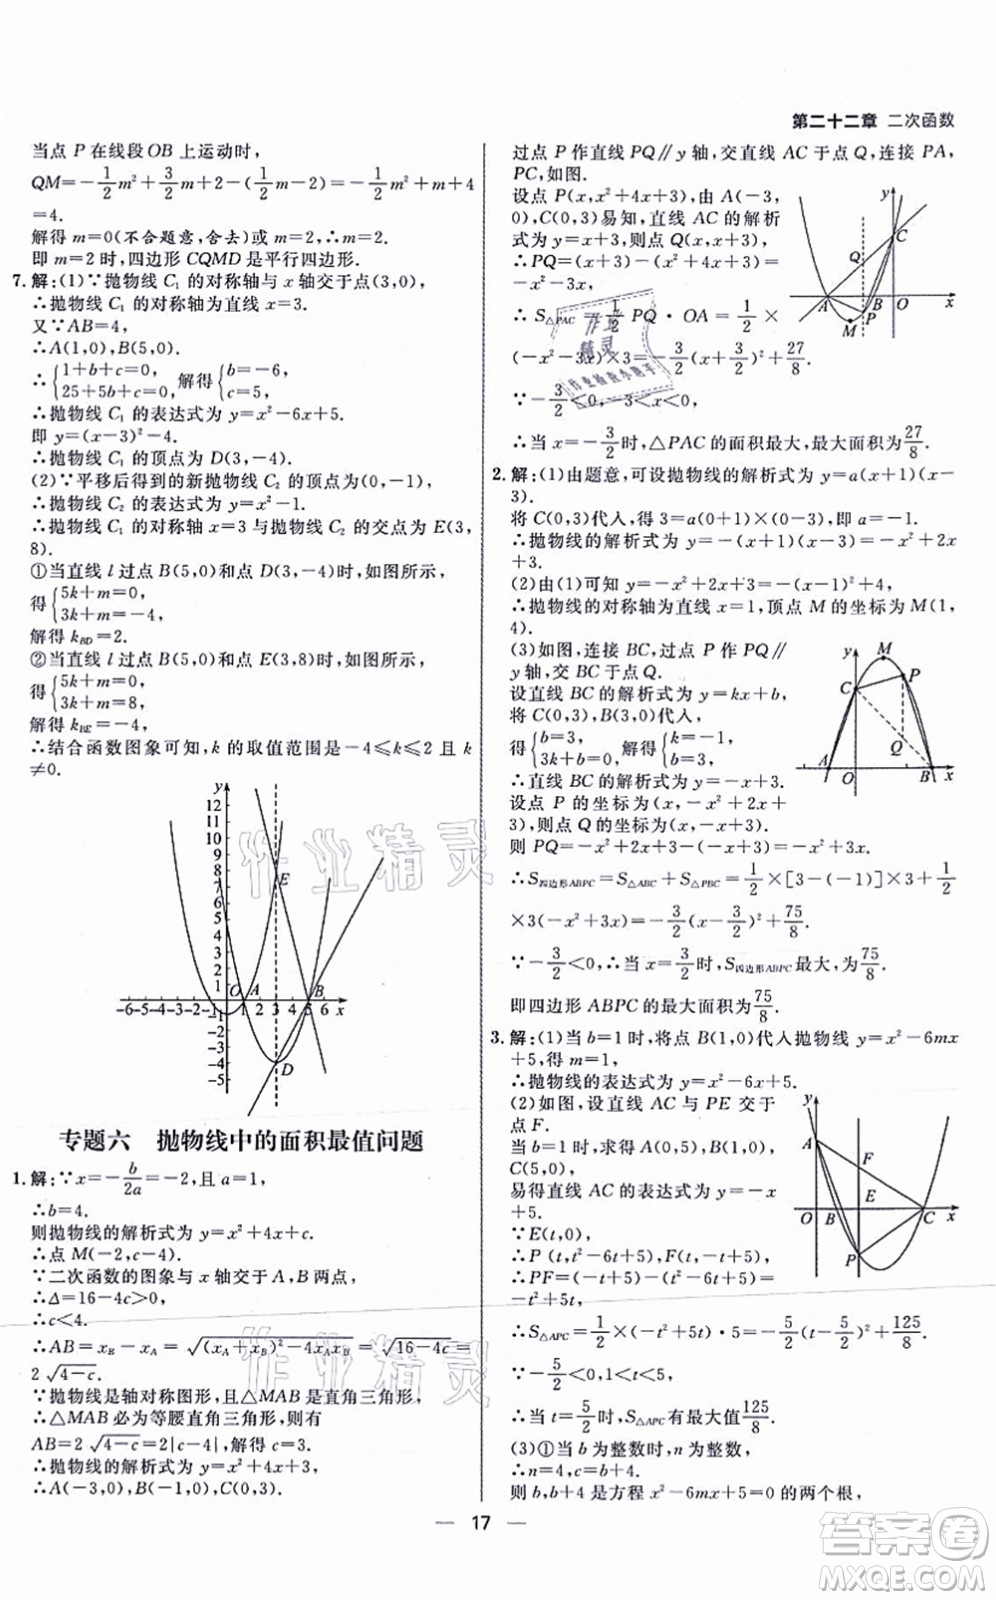 第二十二章 二次函数
当点 P 在线段 OB 上运动时,
QM=-1/2m²+3/2m+2-(1/2m-2)=-m²+m+4
=4.
解得 m=0(不合题意,舍去)或 m=2.
即 m=2 时,四边形 CQMD 是平行四边形.
7.解:(1)∵抛物线 C₁ 的对称轴与 x 轴交于点(3,0),
∴抛物线 C₁ 的对称轴为直线 x=3.
又∵AB=4,
∴A(1,0),B(5,0).
∴{1+b+c=0, 25+5b+c=0, 解得{b=-6, c=5,
∴抛物线 C₁ 的表达式为 y=x²-6x+5.
即 y=(x-3)²-4.
∴抛物线 C₁ 的顶点为 D(3,-4).
(2)∵平移后得到的新抛物线 C₂ 的顶点为(0,-1),
∴抛物线 C₂ 的表达式为 y=x²-1.
∴抛物线 C₁ 的对称轴 x=3 与抛物线 C₂ 的交点为 E(3,
8).
①当直线 l 过点 B(5,0)和点 D(3,-4)时,如图所示,
得{5k+m=0, 3k+m=-4,
解得 k_BD=2.
②当直线 l 过点 B(5,0)和点 E(3,8)时,如图所示,
得{5k+m=0, 3k+m=8,
解得 k_BE=-4.
∴结合函数图象可知,k 的取值范围是-4≤k≤2 且 k
≠0.
y
12
11
10
9
8
7
6
5
4
3
2
1
E
O A B
-6-5-4-3-2-1 1 2 3 4 5 6 x
-1
-2
-3
-4
-5
D
专题六 抛物线中的面积最值问题
1.解:∵x=-b/2a=-2,且 a=1,
∴b=4.
则抛物线的解析式为 y=x²+4x+c.
∴点 M(-2,c-4).
∵二次函数的图象与 x 轴交于 A,B 两点,
∴Δ=16-4c>0,
∴c<4.
∴AB=x_B-x_A=√((x_A+x_B)²-4x_Ax_B)=√(16-4c)=
2√(4-c).
∵抛物线是轴对称图形,且△MAB 是直角三角形,
∴△MAB 必为等腰直角三角形,则有
AB=2√(4-c)=2|c-4|,解得 c=3.
∴抛物线的解析式为 y=x²+4x+3,
∴A(-3,0),B(-1,0),C(0,3).
过点 P 作直线 PQ∥y 轴,交直线 AC 于点 Q,连接 PA,
PC,如图.
设点 P(x,x²+4x+3),由 A(-3,
0),C(0,3)易知,直线 AC 的解析
式为 y=x+3,则点 Q(x,x+3),
∴PQ=(x+3)-(x²+4x+3)=
-x²-3x,
∴S△PAC=1/2PQ·OA=1/2×
(-x²-3x)×3=-3/2(x+3/2)²+27/8
∵-3/2<0,-3<x<0,
∴当 x=-3/2时,△PAC 的面积最大,最大面积为27/8.
y
C
Q
A
M
P
B O x
2.解:(1)由题意,可设抛物线的解析式为 y=a(x+1)(x-
3).
将 C(0,3)代入,得 3=a(0+1)×(0-3),即 a=-1.
∴抛物线的解析式为 y=-(x+1)(x-3)=-x²+2x
+3.
(2)由(1)可知 y=-x²+2x+3=-(x-1)²+4,
∴抛物线的对称轴为直线 x=1,顶点 M 的坐标为(1,
4).
(3)如图,连接 BC,过点 P 作 PQ∥
y 轴,交 BC 于点 Q.
设直线 BC 的解析式为 y=kx+b,
将 C(0,3),B(3,0)代入,
得{b=3, 3k+b=0, 解得{k=-1, b=3,
∴直线 BC 的解析式为 y=-x+3.
设点 P 的坐标为(x,-x²+2x+
3),则点 Q 的坐标为(x,-x+3).
则 PQ=-x²+2x+3-(-x+3)=-x²+3x.
∴S四边形ABPC=S△ABC+S△PBC=1/2×[3-(-1)]×3+1/2
×3(-x²+3x)=-3/2(x-3/2)²+75/8.
∵-3/2<0,∴当 x=3/2时,S四边形ABPC最大,为75/8.
即四边形 ABPC 的最大面积为75/8.
y
M
C P
Q
A O B x
3.解:(1)当 b=1 时,将点 B(1,0)代入抛物线 y=x²-6mx
+5,得 m=1,
∴抛物线的表达式为 y=x²-6x+5.
(2)如图,设直线 AC 与 PE 交于
点 F.
∵当 b=1 时,求得 A(0,5),
C(5,0).
易得直线 AC 的表达式为 y=-x
+5.
∵E(t,0),
∴P(t,t²-6t+5),F(t,-t+5),
∴PF=(-t+5)-(t²-6t+5)=
-t²+5t,
∴S△APC=1/2×(-t²+5t)·5=-5/2(t-5/2)²+125/8.
∵-5/2<0,
∴当 t=5/2时,S△APC有最大值125/8.
(3)①当 b 为整数时,n 为整数,
∴n=4,c=b+4.
则 b,b+4 是方程 x²-6mx+5=0 的两个根,
y
A
F
E
O B C x
P
17
作业精灵
作业精灵
作业精灵
作业检查小助手
答案圈